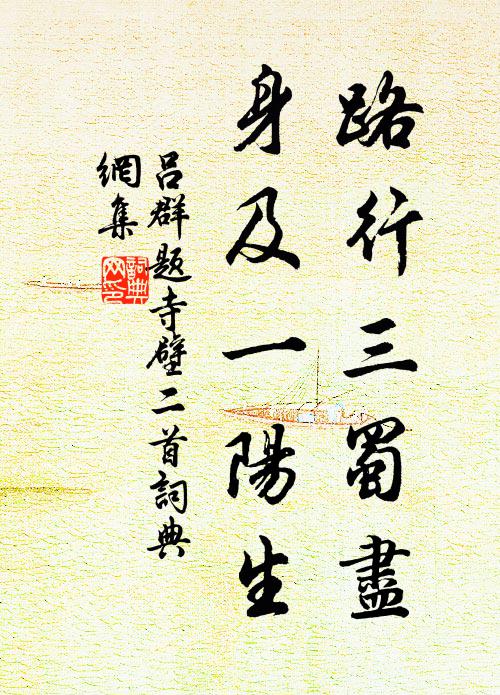 路行三蜀盡
身及一陽生
呂群題寺壁二首詞典
網集
詞典
网印